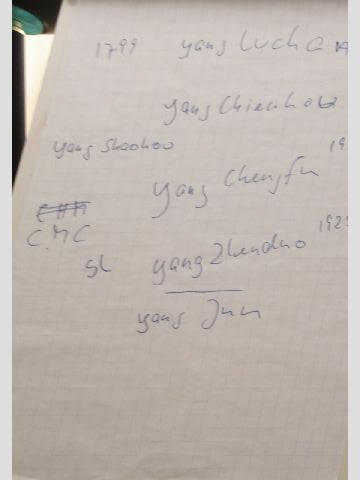 1799 yang Lucha
yang Chienhou
yang Shaohou 19
yang Chengfu
C.M.C
yang Zhenduo 192
yang Jun